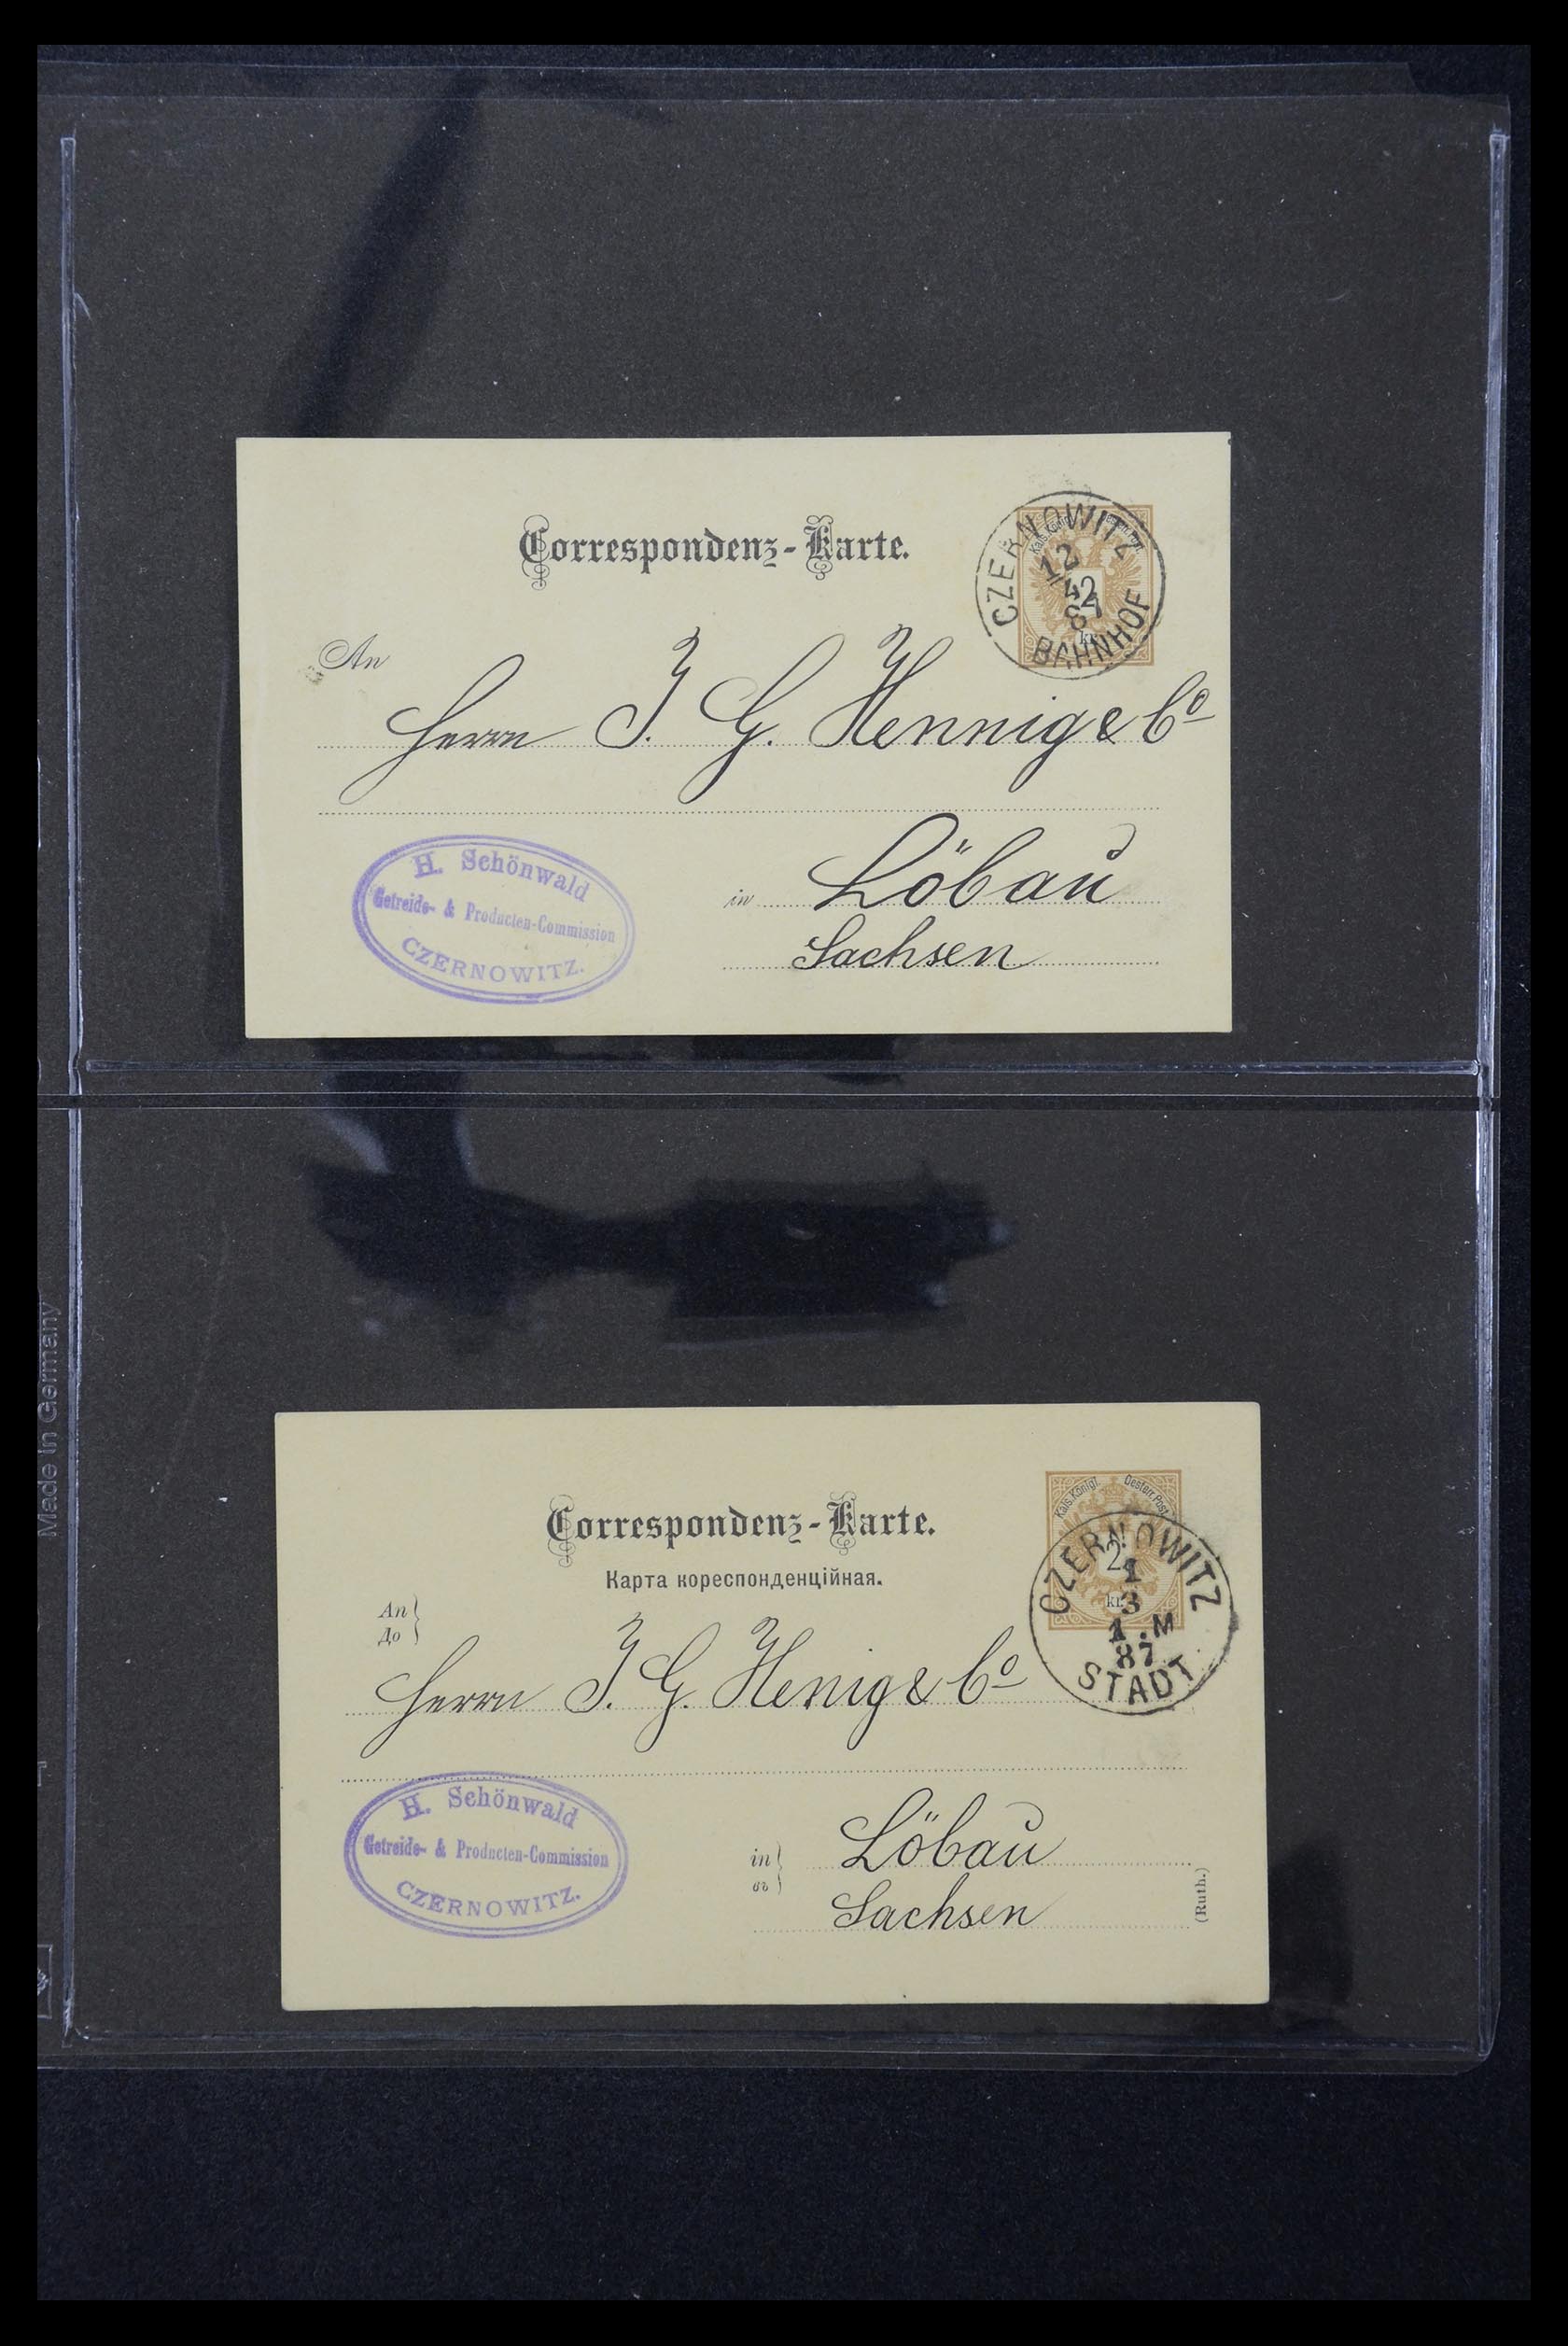 Correspondenz-Karte.
CZERNOWITZ
12
4
87
BAHNHOF
2
kr.
An
Herrn J. G. Hennig & Co
H. Schönwald
Getreide- & Producten-Commission
CZERNOWITZ.
in Löbau
Sachsen
Correspondenz-Karte.
Карта кореспонденційная.
Kais. Königl. Oesterr. Post
2
kr.
CZERNOWITZ
1
3
1.M
87
STADT
An
До
Herrn J. G. Henig & Co
H. Schönwald
Getreide- & Producten-Commission
CZERNOWITZ.
in
въ
Löbau
Sachsen
(Ruth.)
Made in Germany